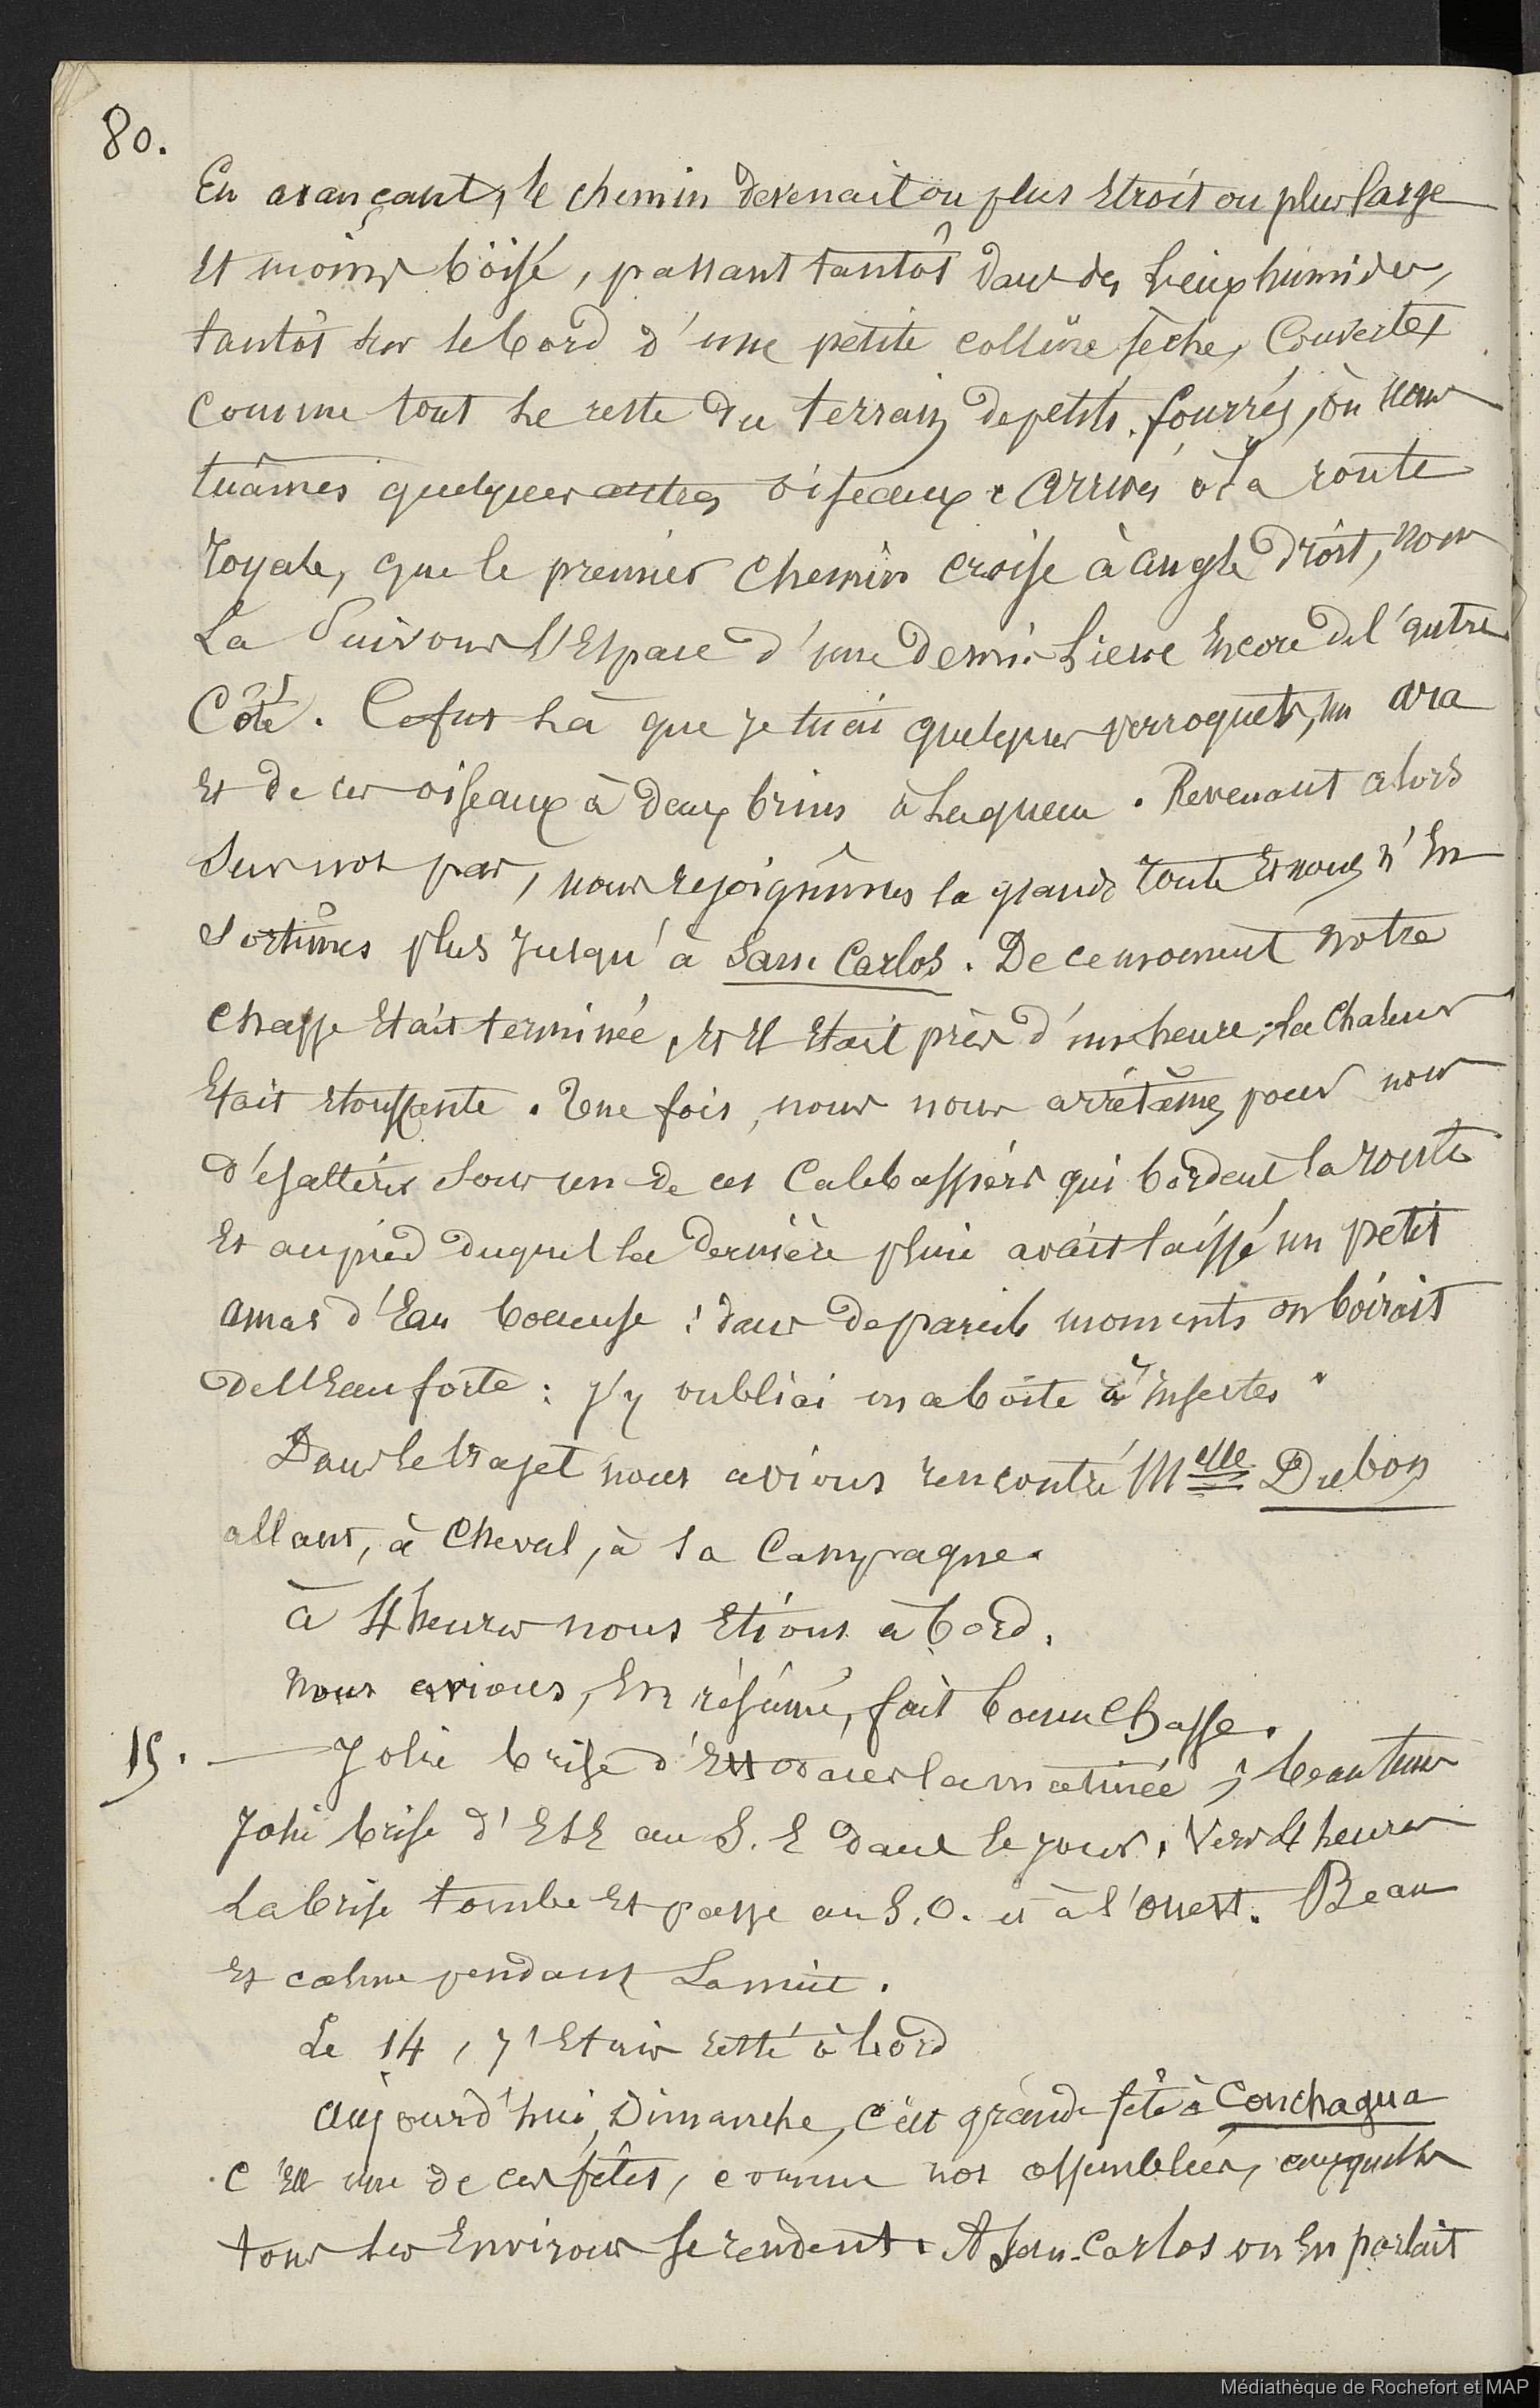 80.
En avançant, le chemin devenait ou plus étroit ou plus large
et moins boisé, passant tantôt dans des lieux humides,
tantôt sur le bord d'une petite colline sèche, couverte,
comme tout le reste du terrain de petits fourrés, où nous
tuâmes quelques autres oiseaux. Arrivés à la route
royale, que le premier chemin croise à angle droit, nous
la suivons l'espace d'une demi-lieue encore de l'autre
côté. Ce fut là que je tuai quelques perroquets, un ara
et de ces oiseaux à deux brins à la queue. Revenant alors
sur nos pas, nous rejoignîmes la grande route et nous n'en
sortîmes plus jusqu'à San Carlos. De ce moment notre
chasse était terminée, et il était près d'une heure; la chaleur
était étouffante. Une fois, nous nous arrêtâmes pour nous
désaltérer sous un de ces calebassiers qui bordent la route
et au pied duquel la dernière pluie avait laissé un petit
amas d'eau boueuse : dans de pareils moments on boirait
de l'eau forte : j'y oubliai ma boîte à insectes.
Dans le trajet nous avions rencontré Melle Dubon
allant, à cheval, à sa campagne.
à 4 heures nous étions à bord.
Nous avions, en résumé, fait bonne chasse.
15. — Jolie brise d'Est dans la matinée ; beau temps
Jolie brise d'ESE au S.E dans le jour. Vers 4 heures
la brise tombe et passe au S.O. et à l'ouest. Beau
et calme pendant la nuit.
Le 14, j'étais resté à bord
Aujourd'hui, Dimanche, c'est grande fête à Conchagua
c'est une de ces fêtes, comme nos assemblées, auxquelles
tous les environs se rendent. A San-Carlos on en parlait
Médiathèque de Rochefort et MAP